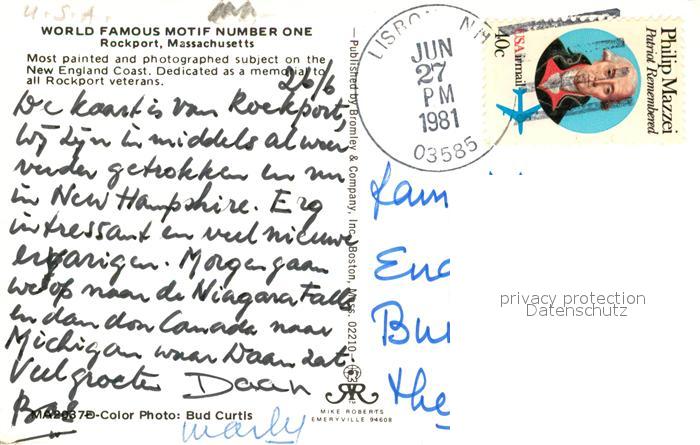 U.S.A.
WORLD FAMOUS MOTIF NUMBER ONE
Rockport, Massachusetts
Most painted and photographed subject on the
New England Coast. Dedicated as a memorial to
all Rockport veterans.
26/6
De kaart is van Rockport,
Wij zijn inmiddels alweer
verder getrokken en nu
in New Hampshire. Erg
intressant en veel nieuwe
ervaringen. Morgen gaan
we op naar de Niagara Falls
en dan door Canada naar
Michigan waar Daan zat.
Veel groeten Daan
Bas
Marly
MA2037D-Color Photo: Bud Curtis
—Published by Bromley & Company, Inc., Boston, Mass. 02210—
MIKE ROBERTS
EMERYVILLE 94608
LISBON NH
JUN
27
PM
1981
03585
USAirmail
40c
Philip Mazzei
Patriot Remembered
Fam
Bu
the
privacy protection
Datenschutz